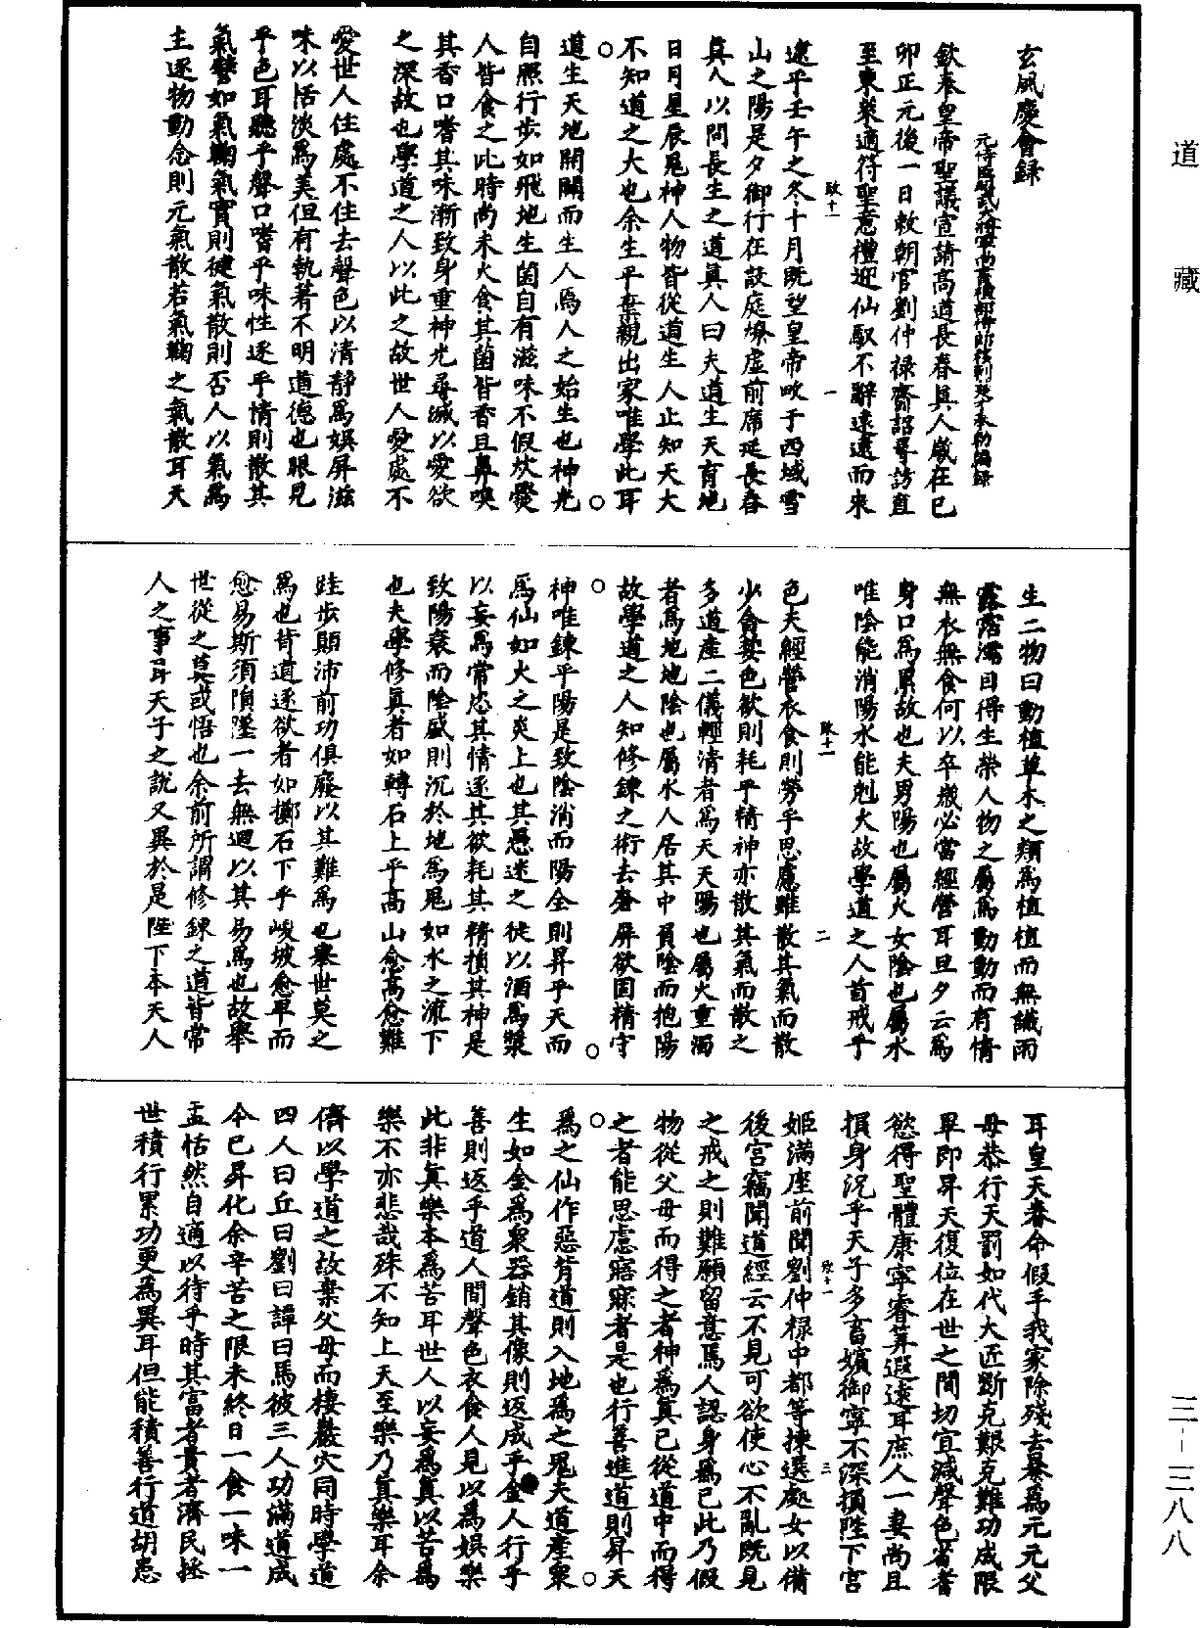 道藏
玄風慶會錄
元侍臣昭武大將軍尚書禮部侍郎移剌楚才奉勑編錄
欽奉皇帝聖議宣請高道長春眞人歲在己
卯正元後一日敕朝官劉仲祿齎詔尋訪直
至東萊適符聖意禮迎仙馭不辭遠遠而來
逮乎壬午之冬十月既望皇帝畋于西域雪
山之陽是夕御行在設庭燎虛前席延長春
眞人以問長生之道眞人曰夫道生天育地
日月星辰鬼神人物皆從道生人止知天大
不知道之大也余生平棄親出家唯學此耳
道生天地開闢而生人焉人之始生也神光
自照行步如飛地生菌自有滋味不假炊爨
人皆食之此時尚未火食其菌皆香且鼻嗅
其香口嗜其味漸致身重神光尋滅以愛欲
之深故也學道之人以此之故世人愛處不
愛世人住處不住去聲色以清靜爲娛屏滋
味以恬淡爲美但有執著不明道德也眼見
乎色耳聽乎聲口嗜乎味性逐乎情則散其
氣譬如氣鞠氣實則健氣散則否人以氣爲
主逐物動念則元氣散若氣鞠之氣散耳天
生二物曰動植草木之類爲植植而無識雨
露霑濡自得生榮人物之屬爲動動而有情
無衣無食何以卒歲必當經營耳旦夕云爲
身口爲累故也夫男陽也屬火女陰也屬水
唯陰能消陽水能剋火故學道之人首戒乎
色夫經營衣食則勞乎思慮雖散其氣而散
少貪婪色欲則耗乎精神亦散其氣而散之
多道產二儀輕清者爲天天陽也屬火重濁
者爲地地陰也屬水人居其中負陰而抱陽
故學道之人知修鍊之術去奢屏欲固精守
神唯鍊乎陽是致陰消而陽全則昇乎天而
爲仙如火之炎上也其愚迷之徒以酒爲漿
以妄爲常恣其情逐其欲耗其精損其神是
致陽衰而陰盛則沉於地爲鬼如水之流下
也夫學修眞者如轉石上乎高山愈高愈難
跬步顚沛前功俱廢以其難爲也舉世莫之
爲也背道逐欲者如擲石下乎峻坡愈卑而
愈易斯須隕墜一去無迴以其易爲也故舉
世從之莫或悟也余前所謂修鍊之道皆常
人之事耳天子之說又異於是陛下本天人
耳皇天眷命假手我家除殘去暴爲元元父
母恭行天罰如代大匠斲克艱克難功成限
畢即昇天復位在世之間切宜減聲色省嗜
慾得聖體康寧睿筭遐遠耳庶人一妻尚且
損身況乎天子多畜嬪御寧不深損陛下宮
姬滿座前聞劉仲祿中都等揀選處女以備
後宮竊聞道經云不見可欲使心不亂既見
之戒之則難願留意焉人認身爲己此乃假
物從父母而得之者神爲眞己從道中而得
之者能思慮寤寐者是也行善進道則昇天
爲之仙作惡背道則入地爲之鬼夫道產衆
生如金爲衆器銷其像則返成乎金人行乎
善則返乎道人間聲色衣食人見以爲娛樂
此非眞樂本爲苦耳世人以妄爲眞以苦爲
樂不亦悲哉殊不知上天至樂乃眞樂耳余
儕以學道之故棄父母而棲巖穴同時學道
四人曰丘曰劉曰譚曰馬彼三人功滿道成
今已昇化余辛苦之限未終日一食一味一
盂恬然自適以待乎時其富者貴者濟民拯
世積行累功更爲異耳但能積善行道胡患
致十一
一
致十一
二
致十一
三
三-三八八